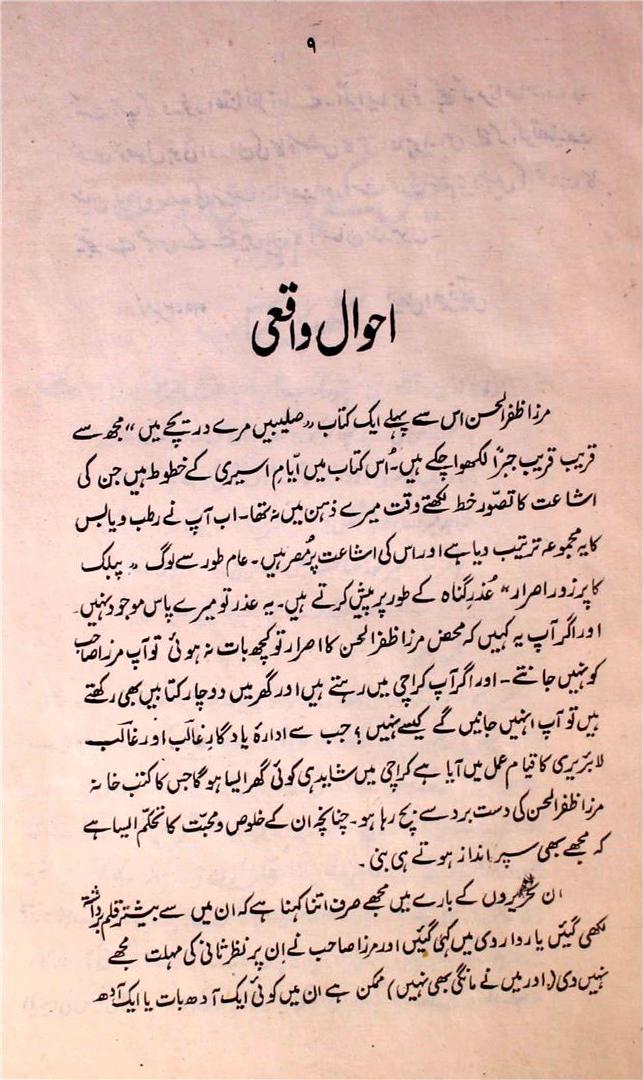 ۹
احوال واقعی
مرزا ظفر الحسن اس سے پہلے ایک کتاب "صلیبیں مرے دریچے میں" مجھ سے
قریب قریب جبراً لکھوا چکے ہیں۔ اُس کتاب میں ایّامِ اسیری کے خطوط ہیں جن کی
اشاعت کا تصّور خط لکھتے وقت میرے ذہن میں نہ تھا۔ اب آپ نے رطب و یابس
کا یہ مجموعہ ترتیب دیا ہے اور اس کی اشاعت پر مُصر ہیں۔ عام طور سے لوگ "پبلک
کا پرزور اصرار" عُذرِ گناہ کے طور پر پیش کرتے ہیں۔ یہ عذر تو میرے پاس موجود نہیں۔
اور اگر آپ یہ کہیں کہ محض مرزا ظفر الحسن کا اصرار تو کچھ بات نہ ہوئی تو آپ مرزا صاحب
کو نہیں جانتے۔ اور اگر آپ کراچی میں رہتے ہیں اور گھر میں دو چار کتابیں بھی رکھتے
ہیں تو آپ انہیں جانیں گے کیسے نہیں؟ جب سے ادارۂ یادگارِ غالب اور غالب
لائبریری کا قیام عمل میں آیا ہے کراچی میں شاید ہی کوئی گھر ایسا ہو گا جس کا کتب خانہ
مرزا ظفر الحسن کی دست برد سے بچ رہا ہو۔ چنانچہ ان کے خلوص و محبّت کا تحکّم ایسا ہے
کہ مجھے بھی سپر انداز ہوتے ہی بنی۔
ان تحریروں کے بارے میں مجھے صرف اتنا کہنا ہے کہ ان میں سے بیشتر قلم برداشتہ
لکھی گئیں یا رواروی میں کہی گئیں اور مرزا صاحب نے اِن پر نظر ثانی کی مہلت مجھے
نہیں دی (اور میں نے مانگی بھی نہیں) ممکن ہے ان میں کوئی ایک آدھ بات یا ایک آدھ